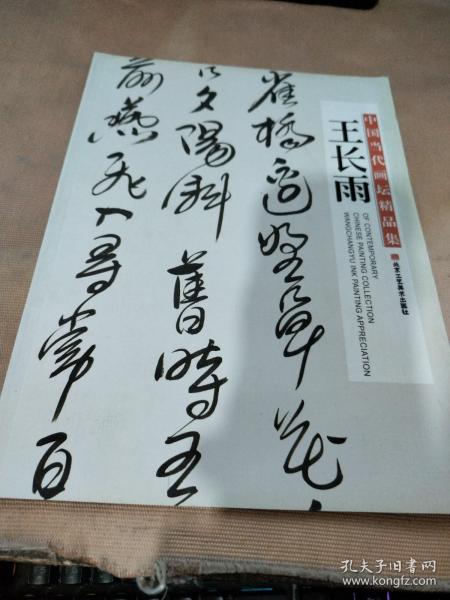 雀橋邊野草花
口夕陽斜 舊時王
前燕飛入尋常百
中国当代画坛精品集
王长雨
OF CONTEMPORARY
CHINESE PAINTING COLLECTION
WANGCHANGYU INK PAINTING APPRECIATION
北京工艺美术出版社
孔夫子旧书网
www.kongfz.com